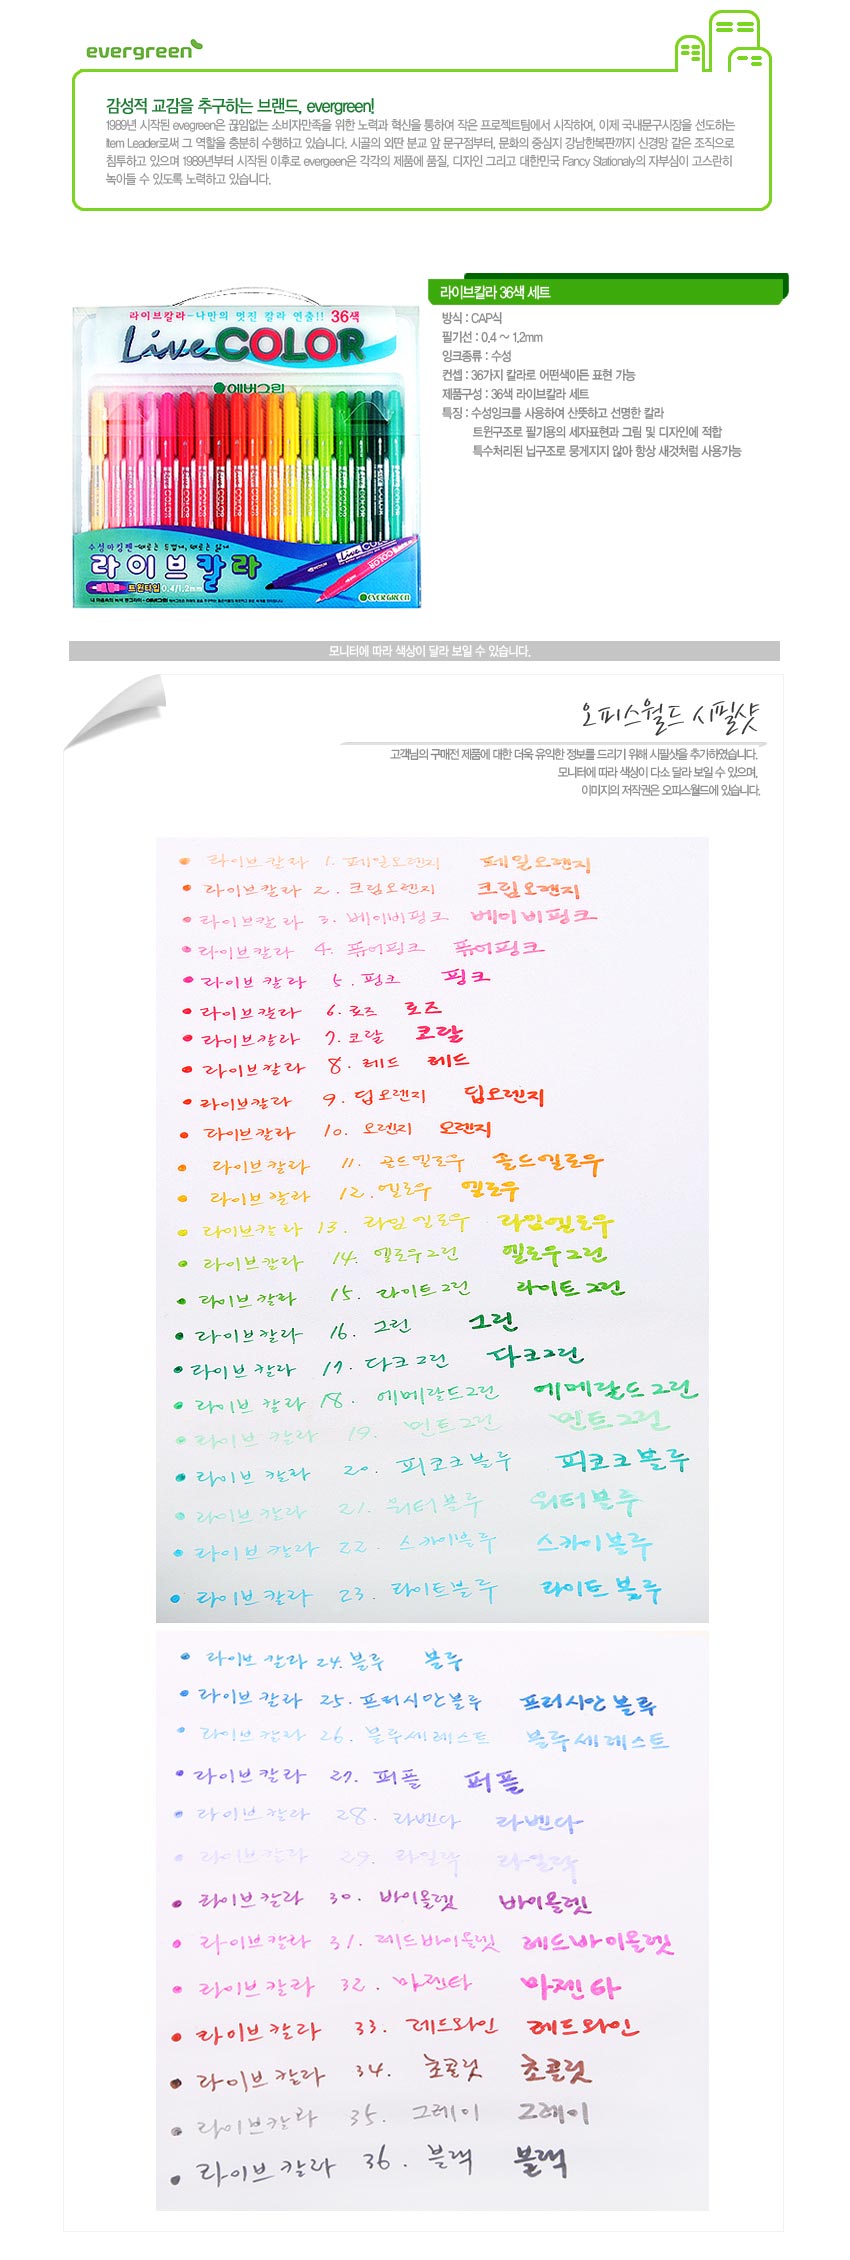 evergreen
감성적 교감을 추구하는 브랜드, evergreen!
1989년 시작된 evegreen은 끊임없는 소비자만족을 위한 노력과 혁신을 통하여 작은 프로젝트팀에서 시작하여, 이제 국내문구시장을 선도하는
Item Leader로써 그 역할을 충분히 수행하고 있습니다. 시골의 외딴 분교 앞 문구점부터, 문화의 중심지 강남한복판까지 신경망 같은 조직으로
침투하고 있으며 1989년부터 시작된 이후로 evergeen은 각각의 제품에 품질, 디자인 그리고 대한민국 Fancy Stationaly의 자부심이 고스란히
녹아들 수 있도록 노력하고 있습니다.
라이브칼라 36색 세트
방식 : CAP식
필기선 : 0.4 ~ 1.2mm
잉크종류 : 수성
컨셉 : 36가지 칼라로 어떤색이든 표현 가능
제품구성 : 36색 라이브칼라 세트
특징 : 수성잉크를 사용하여 산뜻하고 선명한 칼라
트윈구조로 필기용의 세자표현과 그림 및 디자인에 적합
특수처리된 닙구조로 뭉게지지 않아 항상 새것처럼 사용가능
라이브칼라-나만의 멋진 칼라 연출!! 36색
Live COLOR
에버그린
수성마킹펜-때로는 두껍게, 때로는 얇게
라이브칼라
트윈타입 0.4/1.2mm
EVERGREEN
모니터에 따라 색상이 달라 보일 수 있습니다.
오피스월드 시필샷
고객님의 구매전 제품에 대한 더욱 유익한 정보를 드리기 위해 시필샷을 추가하였습니다.
모니터에 따라 색상이 다소 달라 보일 수 있으며,
이미지의 저작권은 오피스월드에 있습니다.
라이브칼라 1. 페일오렌지 페일오렌지
라이브칼라 2. 크림오렌지 크림오렌지
라이브칼라 3. 베이비핑크 베이비핑크
라이브칼라 4. 퓨어핑크 퓨어핑크
라이브칼라 5. 핑크 핑크
라이브칼라 6. 로즈 로즈
라이브칼라 7. 코랄 코랄
라이브칼라 8. 레드 레드
라이브칼라 9. 딥오렌지 딥오렌지
라이브칼라 10. 오렌지 오렌지
라이브칼라 11. 골드옐로우 골드옐로우
라이브칼라 12. 옐로우 옐로우
라이브칼라 13. 라임옐로우 라임옐로우
라이브칼라 14. 옐로우그린 옐로우그린
라이브칼라 15. 라이트그린 라이트그린
라이브칼라 16. 그린 그린
라이브칼라 17. 다크그린 다크그린
라이브칼라 18. 에메랄드그린 에메랄드그린
라이브칼라 19. 민트그린 민트그린
라이브칼라 20. 피코크블루 피코크블루
라이브칼라 21. 워터블루 워터블루
라이브칼라 22. 스카이블루 스카이블루
라이브칼라 23. 라이트블루 라이트블루
라이브칼라 24. 블루 블루
라이브칼라 25. 프러시안블루 프러시안블루
라이브칼라 26. 블루세레스트 블루세레스트
라이브칼라 27. 퍼플 퍼플
라이브칼라 28. 라벤다 라벤다
라이브칼라 29. 라일락 라일락
라이브칼라 30. 바이올렛 바이올렛
라이브칼라 31. 레드바이올렛 레드바이올렛
라이브칼라 32. 마젠타 마젠타
라이브칼라 33. 레드와인 레드와인
라이브칼라 34. 초콜릿 초콜릿
라이브칼라 35. 그레이 그레이
라이브칼라 36. 블랙 블랙